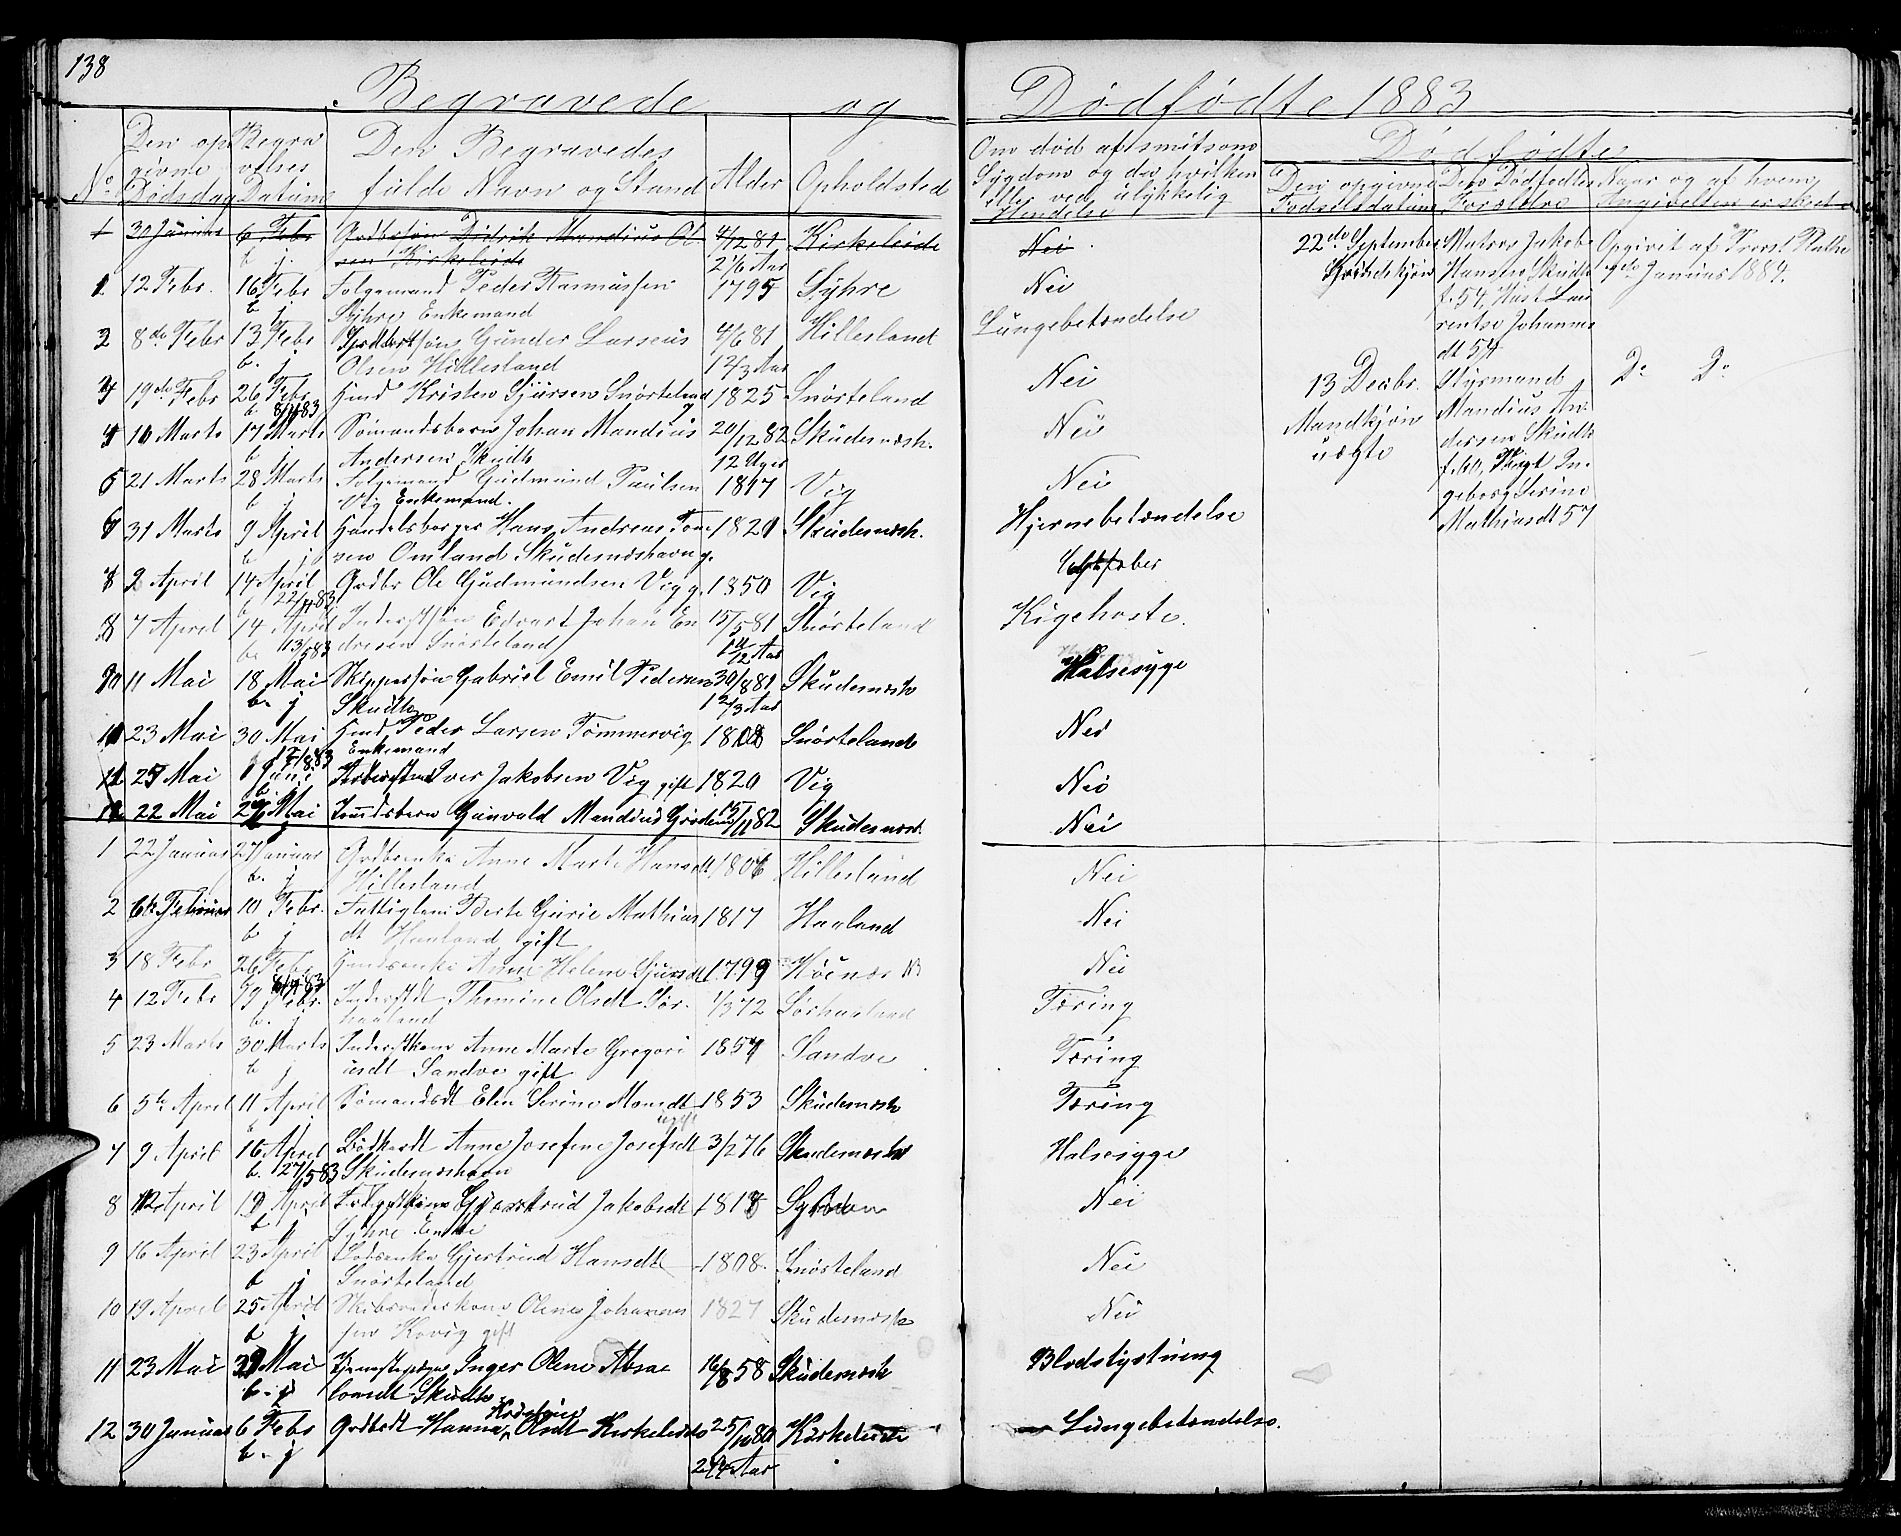 138
Begravede og Dødfødte 1883
No
Den opgivne Dødsdag
Begravelses Datum
Den Begravedes fulde Navn og Stand
Alder
Opholdsted
Om død af smitsom Sygdom og da hvilken eller ved ulykkelig Hendelse
Dødfødte
Den opgivne Fødselsdatum
Dets Dødfødtes Forældre
Naar og af hvem Angivelsen er skeet
1 30 Januar 6 Febr Grdbrsøn Didrik Mandius Ol Kirkeleide Nei
sen Kirkeleide 2 1/6 Aar
1 12 Febr. 16 Febr Folgemand Peder Rasmussen 1795 Syhre Nei
b j Syhre Enkemand
2 8de Febr 13 Febr Gunder Larseus 4/6 81 Hillesland Lungebetændelse
b. j. Olsen Hillesland 1 2/3 Aar
3 19de Febr 26 Febr Hmd Kristen Sjursen Snørteland 1825 Snørteland Nei
b. 8/4 83 g
4 10 Marts 17 Marts Sømandsbarn Johan Mandius 20/12 82 Skudesnæsh. Nei
b j Andersen Skudh 12 Uger
5 21 Marts 28 Marts Folgemand Gudmund Paulsen 1817 Vig Nei
b j Vig Enkemand.
6 31 Marts 9 April Handelsborger Hans Andreas Tone 1820 Skudesnæsh. Hjernebetændelse
b j sen Omland Skudesnæshavn g.
2 April 14 April Grdbr Ole Gudmundsen Vig g. 1850 Vig
b 22/4 83
8 7 April 14 April Inderstsøn Edvart Johan En 15/5 81 Snørteland Kighoste.
b. 13/5 83 dresen Snørteland 1 11/12 Aar
11 Mai 18 Mai Skippersøn Gabriel Emil Pedersen 30/8 81 Skudesnæsh Halsesyge
b. j Skudh 1 2/3 Aar
10 23 Mai 30 Mai Hmd Peder Larsen Tømmervig 1808 Snørteland Nei
Enkemand
11 25 Mai 1 Juni Iver Jakobsen Vig gift 1820 Vig Nei
12 22 Mai Mai Gunvald Mandius 15/11 82 Skudesnæsh. Nei
1 22 Januar 27 Januar Grdbrenke Anne Marte Hansdt 1806 Hillesland Nei
b. j Hillesland
2 6te Februar 10 Febr. Fattiglem Berte Gurie Mathias 1817 Haaland Nei
b j dt Haaland gift
3 18 Febr 26 Febr Hmdsenke Anne Helene Sjursdt 1799 Høinæs Nei
4 12 Febr 19 Febr. Inderstdt Themine Olsdt Sør. 1/3 72 Sørhaaland Tæring
b. j haaland
5 23 Marts 30 Marts Inderstkone Anne Marte Gregori 1857 Sandve Tæring
b j usdt Sandve gift
6 5te April 11 April Sømandsdt Elen Serine Monsdt 1853 Skudesnæsh Tæring
ugift
7 9 April 16 April Bødkerdt Anne Josefine Josefsdt 3/2 76 Skudesnæsh Halsesyge
b. 27/5 83 Skudesnæshavn
8 12 April 19 April Jakobsdt 1818 Nei
b j Syhre Enke
9 16 April 23 April Lodsenke Gjertrud Hansdt 1808. Snørteland Nei
b j Snørteland
10 19 April 25 April Skibsrederkone Olene Johannes 1827 Skudesnæsh Nei
b j sen Kovig gift
11 23 Mai Mai Tjenestepige Inger Olene Absa 16/8 58 Skudesnæsh Blodstyrtning
b. j lomsdt Skudh
12 30 Januar 6 Febr Grdbrdt Hanna Olsdt Kirkeleide 25/10 80 Kirkeleide Lungebetændelse.
b. j 2 1/4 Aar
22de September Kvindekjøn
Matros Jakob Hansen Skudh f. 54, Hust Lau rentse Johannes dt 54
Opgivet af Januar 1884.
13 Decbr. Mandkjøn uægte
Styrmand Mandius An dersen Skudh f. 60, Pige In geborg Serine Mathiasdt 57
Do Do